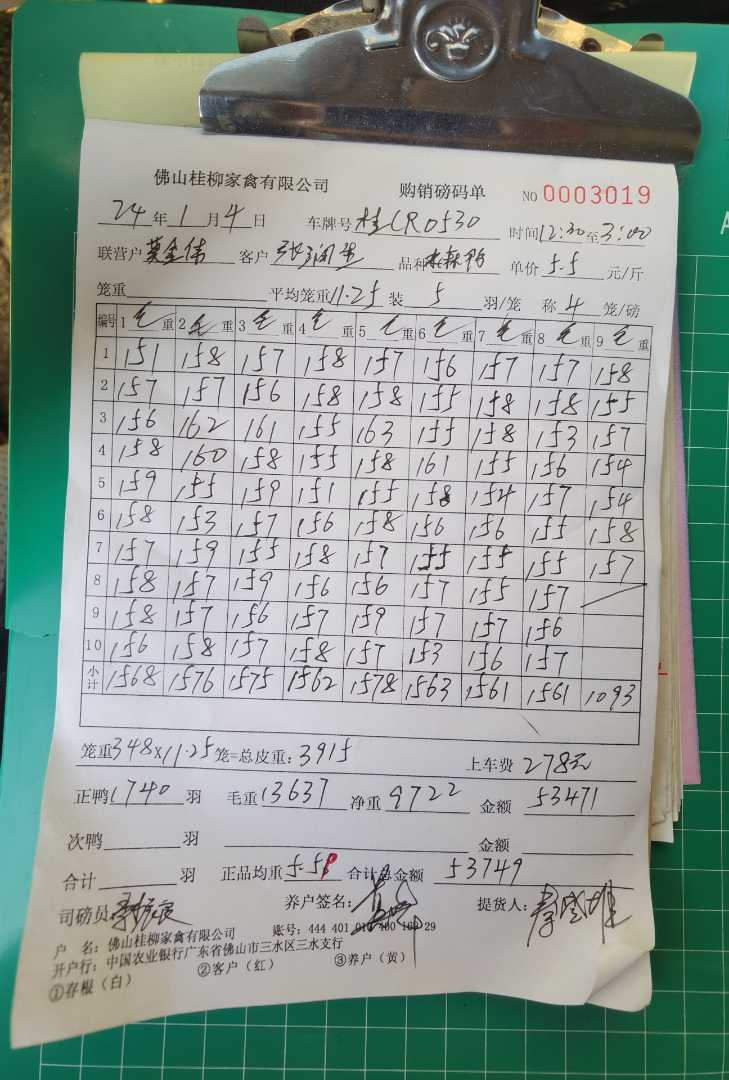 佛山桂柳家禽有限公司 购销磅码单 NO 0003019
24年1月4日 车牌号桂CR0530 时间12:30至3:00
联营户 客户 品种 单价5.5元/斤
笼重 平均笼重11.25装5羽/笼 称4笼/磅
编号 1毛重 2毛重 3毛重 4毛重 5毛重 6毛重 7毛重 8毛重 9毛重
1 151 158 157 158 157 156 157 157 158
2 157 157 156 158 158 155 158 158 155
3 156 162 161 155 163 155 158 153 157
4 158 160 158 155 158 161 155 156 154
5 159 155 159 151 155 158 154 157 154
6 158 153 157 156 158 156 156 155 158
7 157 159 155 158 157 155 155 155 157
8 158 157 159 156 156 157 155 157
9 158 157 156 157 159 157 157 156
10 156 158 157 158 157 153 156 157
小计 1568 1576 1575 1562 1578 1563 1561 1561 1093
笼重348×11.25笼=总皮重:3915 上车费278元
正鸭1740羽 毛重13637 净重9722 金额53471
次鸭 羽 金额
合计 羽 正品均重5.58 合计总金额53749
司磅员: 养户签名: 提货人:
户 名:佛山桂柳家禽有限公司 账号:444 401 010 400 169 29
开户行:中国农业银行广东省佛山市三水区三水支行
①存根(白) ②客户(红) ③养户(黄)